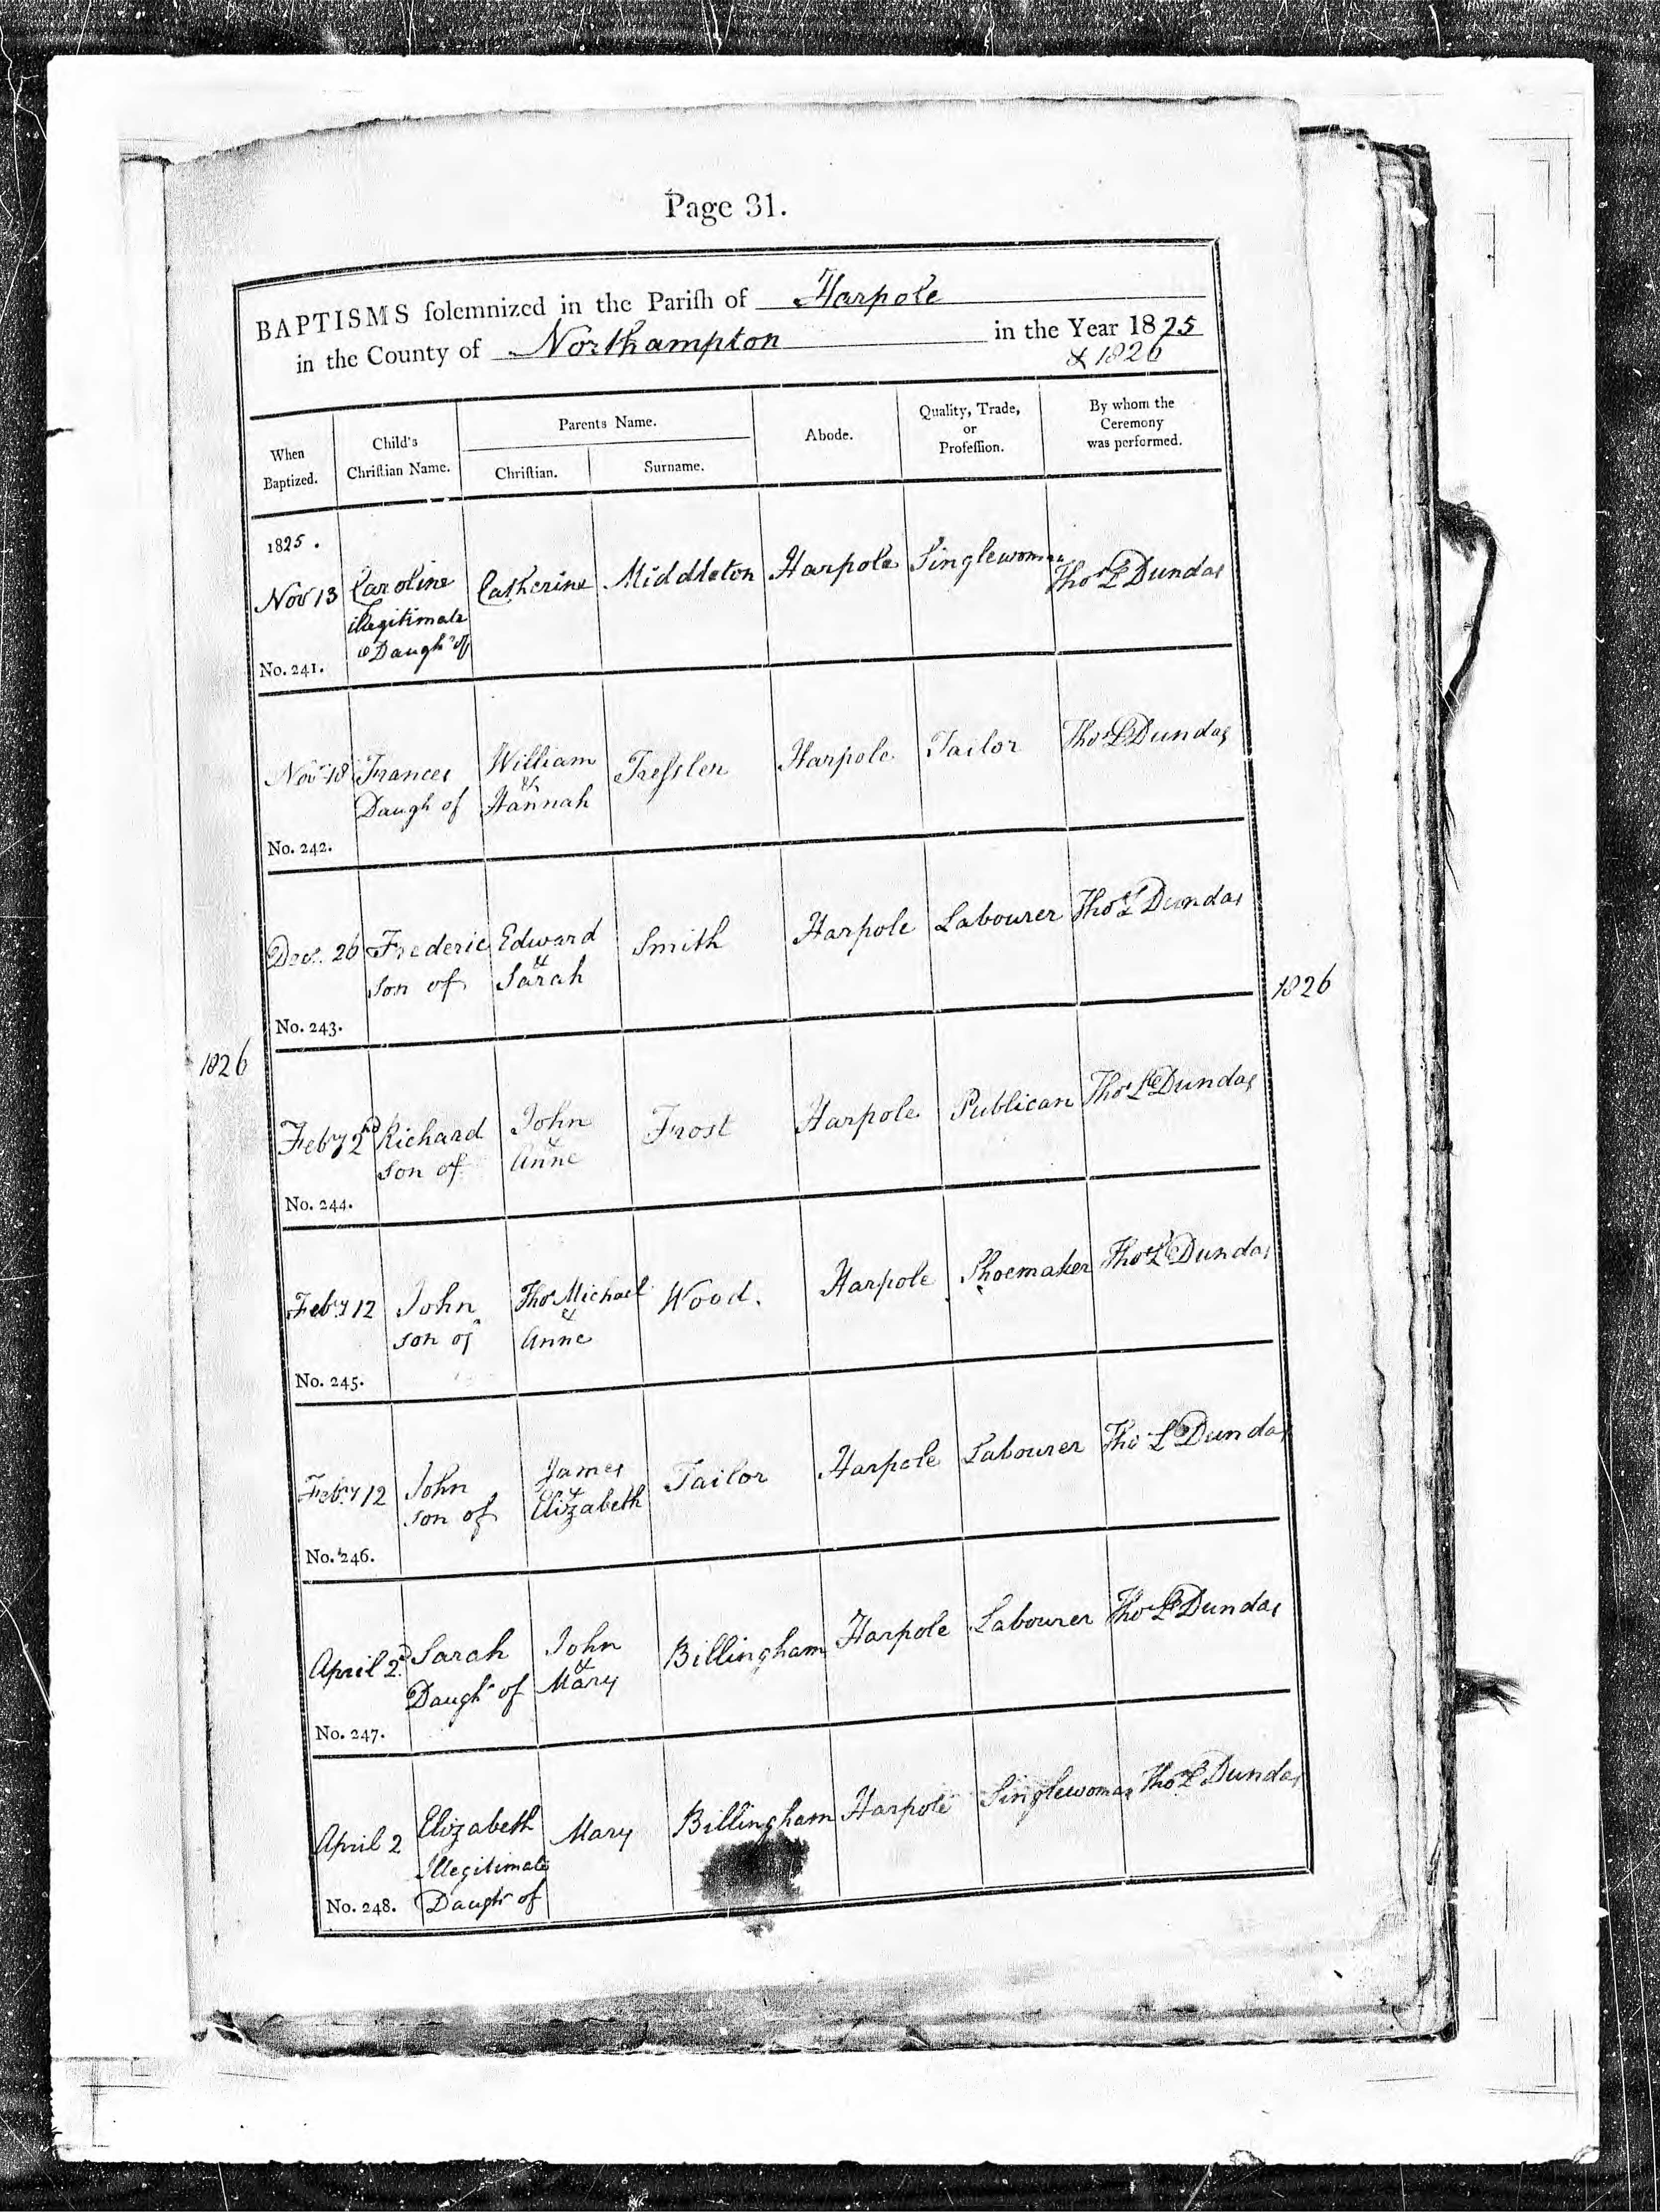 Page 31.
BAPTISMS ſolemnized in the Pariſh of Harpole
in the County of Northampton in the Year 1825
& 1826
When Baptized. Child's Chriſtian Name. Parents Name. Chriſtian. Surname. Abode. Quality, Trade, or Profeſſion. By whom the Ceremony was performed.
1825.
Nov 13 Caroline Catherine Middleton Harpole Singlewoman Thos L Dundas
illegitimate
Daughr of
No. 241.
Novr 18 Frances William & Hannah Treſslen Harpole Tailor Thos L Dundas
Daugh of
No. 242.
Decr. 26 Frederic Edward & Sarah Smith Harpole Labourer Thos L Dundas
son of
No. 243.
1826 1826
Feby 2nd Richard John & Anne Frost Harpole Publican Thos L Dundas
son of
No. 244.
Feby 12 John Thos Michael & Anne Wood. Harpole Shoemaker Thos L Dundas
son of
No. 245.
Feby 12 John James & Elizabeth Tailor Harpole Labourer Thos L Dundas
son of
No. 246.
April 2d Sarah John & Mary Billingham Harpole Labourer Thos L Dundas
Daughr of
No. 247.
April 2 Elizabeth Mary Billingham Harpole Singlewoman Thos L Dundas
Illegitimate
Daughr of
No. 248.